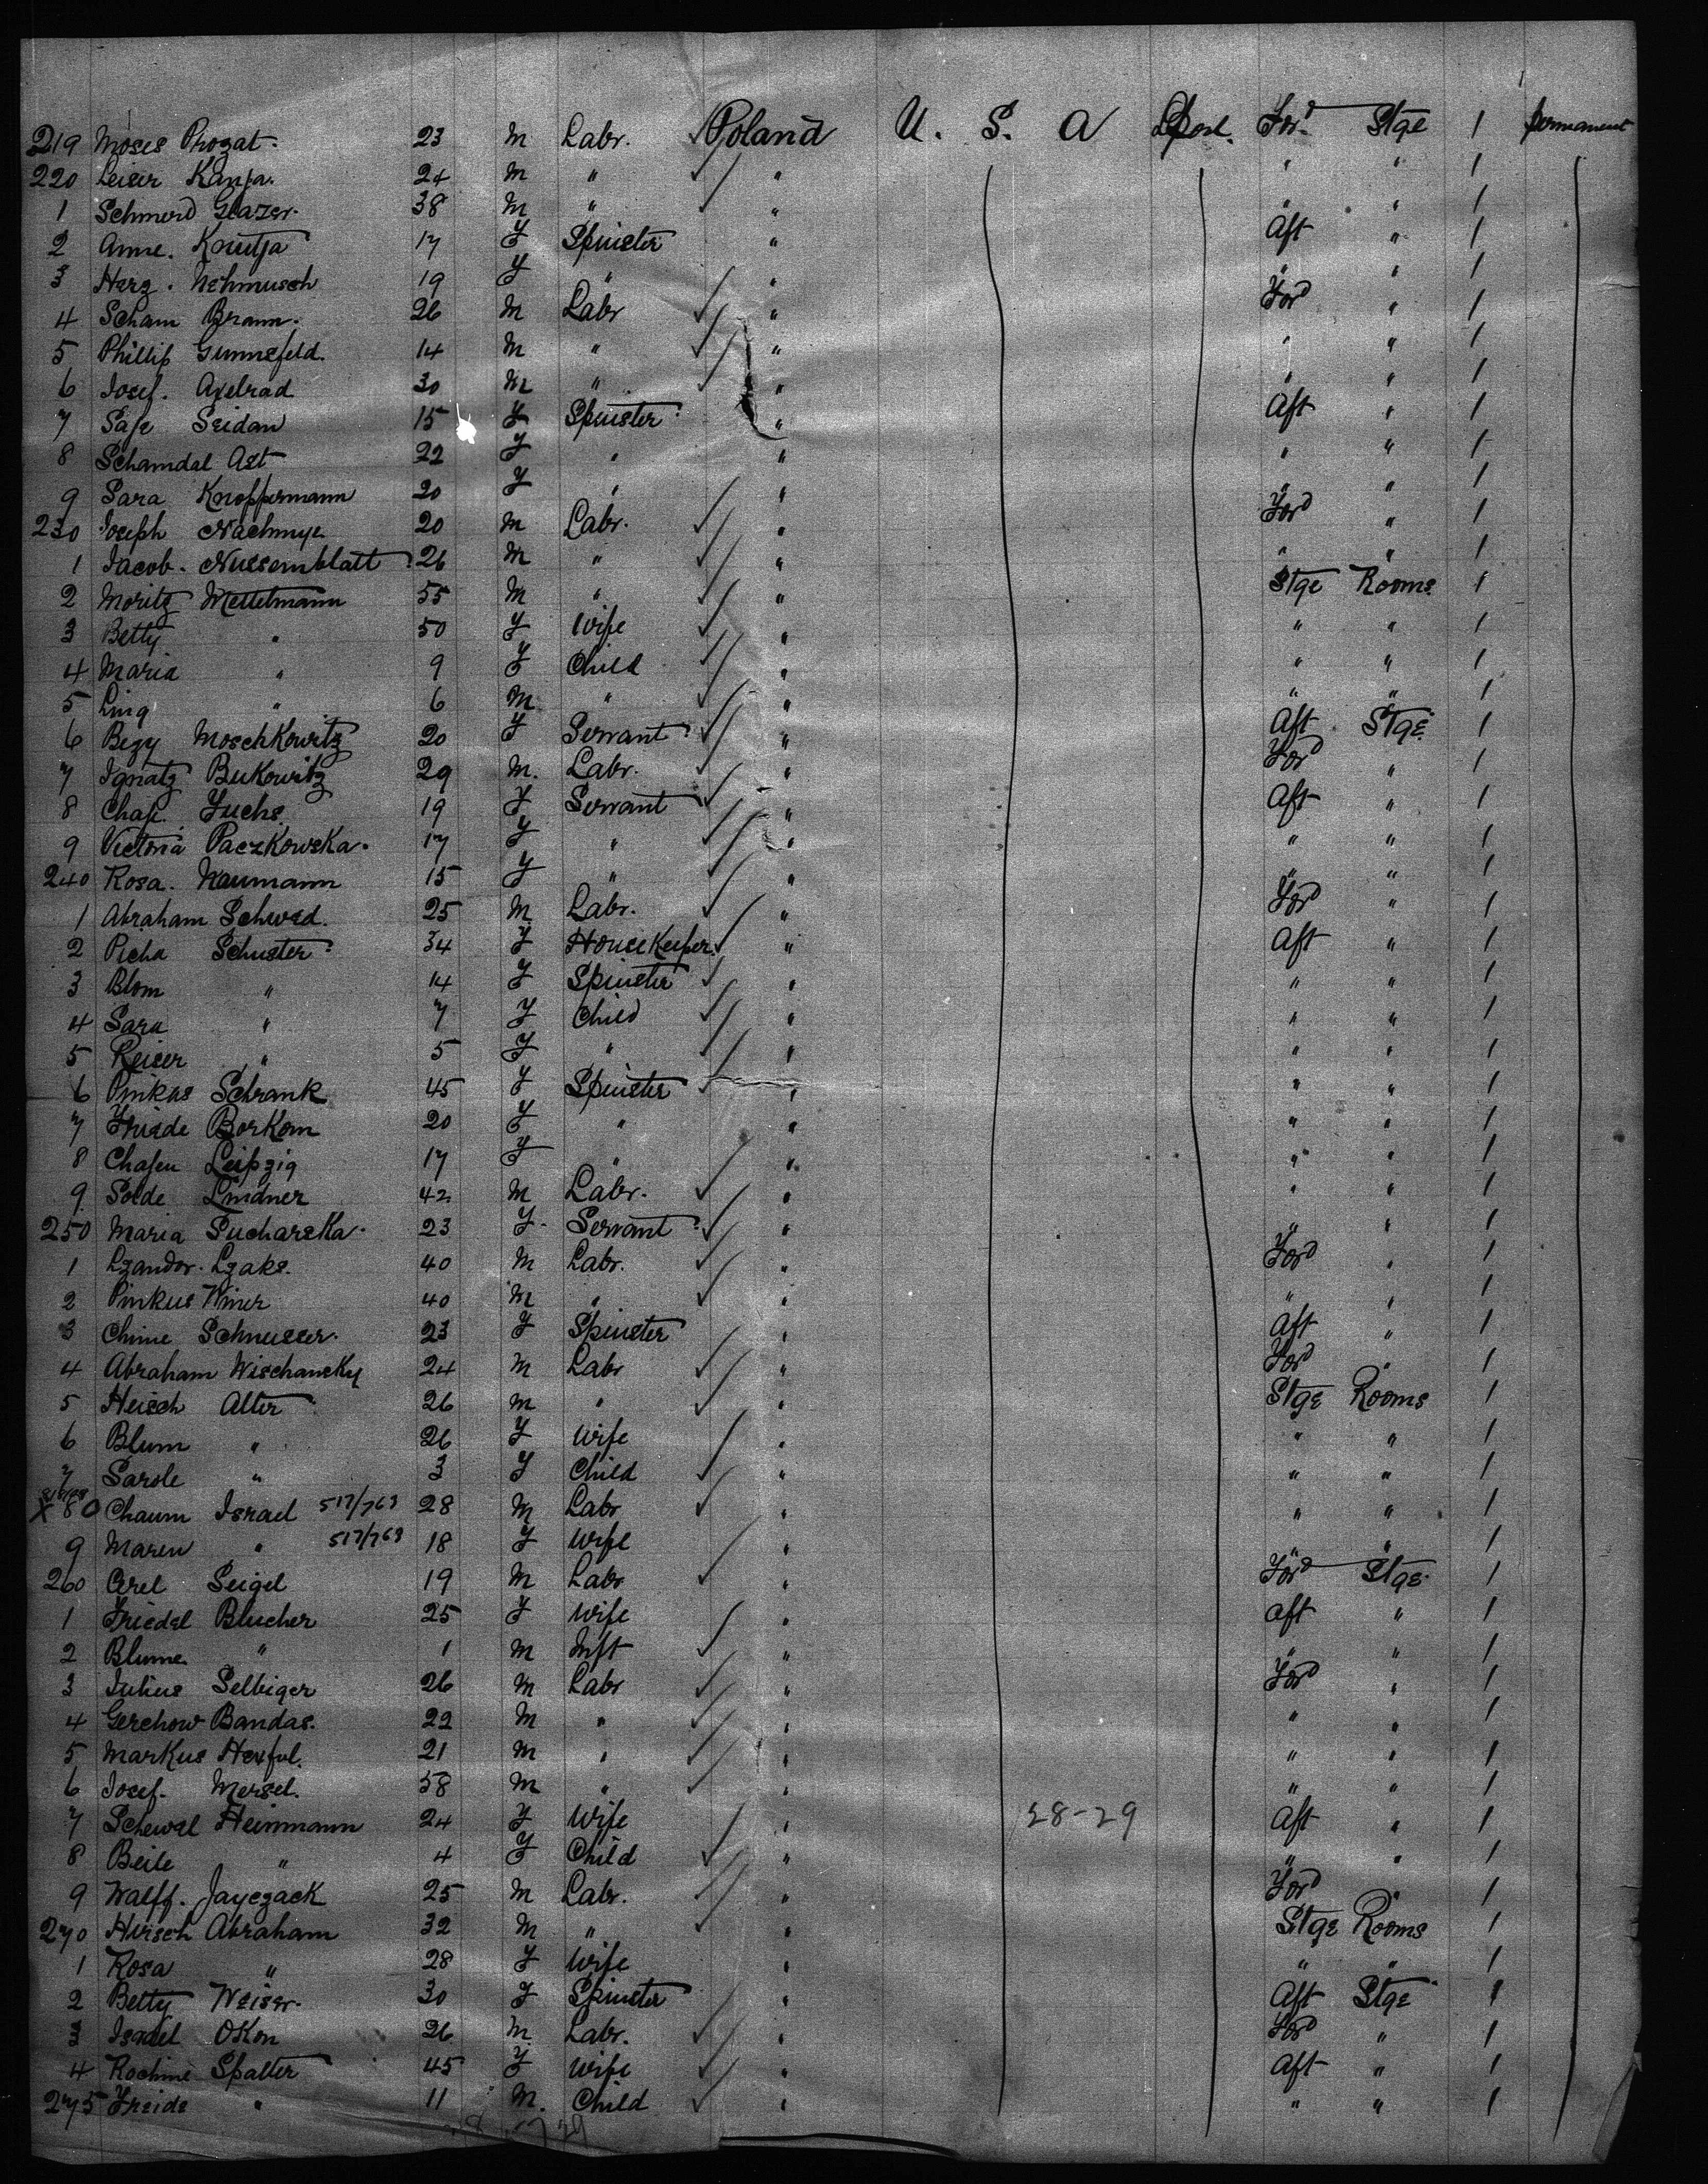 219 Moses Prozat. 23 M Labr. Poland U. S. A Lpool. Ford Stge 1 permanent
220 Leiser Kanfa. 24 M " " " " 1
1 Schmerd Glazer. 38 M " " " " 1
2 Anne. Knutja 17 F Spinster " Aft " 1
3 Herz. Nehmusch 19 F " " " " 1
4 Scham Bramm. 26 M Labr " Ford " 1
5 Phillip Gumnefeld. 14 M " " " " 1
6 Josef. Axelrad 30 M " " " " 1
7 Safe Seidan 15 F Spinster " Aft " 1
8 Schamdal Ast 22 F " " " " 1
9 Sara Knoffermann 20 F " " " " 1
230 Joseph Nachmye 20 M Labr. " Ford " 1
1 Jacob. Nussemblatt 26 M " " " " 1
2 Moritz Mettelmann 55 M " " Stge Rooms 1
3 Betty " 50 F Wife " " " 1
4 Maria " 9 F Child " " " 1
5 Ling " 6 M " " " " 1
6 Begy Moschkowitz 20 F Servant " Aft Stge 1
7 Ignatz Bukowitz 29 M. Labr. " Ford " 1
8 Chafe. Fuchs 19 F Servant " Aft " 1
9 Victoria Paczkowska. 17 F " " " " 1
240 Rosa. Naumann 15 F " " " " 1
1 Abraham Schwed. 25 M Labr. " Ford " 1
2 Picha Schuster 34 F Housekeeper " Aft " 1
3 Blom " 14 F Spinster " " " 1
4 Sara " 7 F Child " " " 1
5 Reiser " 5 F " " " " 1
6 Pinkas Schrank 45 F Spinster " " " 1
7 Friede Borkom 20 F " " " " 1
8 Chafen Leipzig 17 F " " " " 1
9 Solde Lindner 42 M Labr. " " " 1
250 Maria Sucharska. 23 F Servant " " " 1
1 Lzandor. Lzaks. 40 M Labr. " Ford " 1
2 Pinkus Winer 40 M " " " " 1
3 Chime Schnusser. 23 F Spinster " Aft " 1
4 Abraham Wischansky 24 M Labr " Ford " 1
5 Heisch Alter 26 M " " Stge Rooms 1
6 Blum " 26 F Wife " " " 1
7 Sarole " 3 F Child " " " 1
X 8 Chaum Israel 517/763 28 M Labr " " " 1
9 Maren " 517/763 18 F Wife " " " 1
260 Carel Seigel 19 M Labr " Ford Stge 1
1 Friedel Blucher 25 F Wife " Aft " 1
2 Blume " 1 M Inft " " " 1
3 Julius Selbiger 26 M Labr " Ford " 1
4 Gerchow Bandas. 22 M " " " " 1
5 Markus Herful. 21 M " " " " 1
6 Josef. Mersel. 38 M " " " " 1
7 Schewal Heinmann 24 F Wife " 28-29 Aft " 1
8 Beile " 4 F Child " " " 1
9 Walff. Jayczack 25 M Labr. " Ford " 1
270 Hirsch Abraham 32 M " " Stge Rooms 1
1 Rosa " 28 F Wife " " " 1
2 Betty Weiser. 30 F Spinster " Aft Stge 1
3 Israel Okon 26 M Labr. " Ford " 1
4 Rochme Spalter 45 F Wife " Aft " 1
275 Freide " 11 M. Child " " " 1